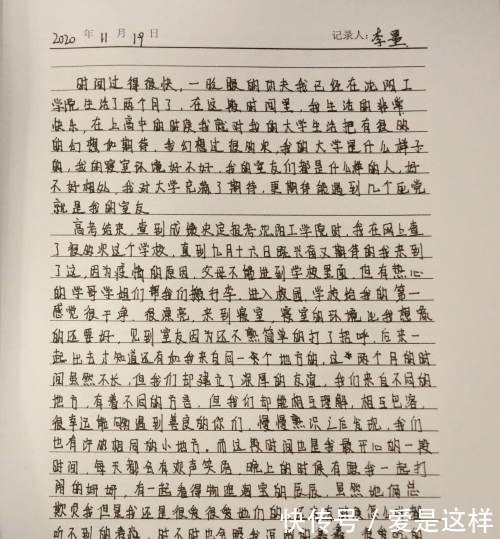 2020 年 11 月 19 日 记录人: 李墨
时间过得很快,一眨眼的功夫我已经在沈阳工
学院生活了两个月了,在这段时间里,我生活的非常
快乐,在上高中的时候我就对我的大学生活抱有很多
的幻想和期待,我幻想过很多次,我的大学是什么样子
的,我的寝室环境好不好,我的室友们都是什么样的人,好
不好相处,我对大学充满了期待,更期待能遇到几个
就是我的室友
高考结束,查到成绩决定报考沈阳工学院时,我在网上查
了很多次这个学校,直到九月十六日既兴奋又期待的我来到
了这,因为疫情的原因,父母不能进到学校里面,但有热心
的学哥学姐们帮我们搬行李,进入校园,学校给我的第一
感觉很干净,很漂亮,来到寝室,寝室的环境比我想象
的还要好,见到室友因为还不熟简单的打了招呼,后来一
起出去才知道还有和我来自同一个地方的,这两个月的时
间虽然不长,但我们却建立了深厚的友谊,我们来自不同的
地方,有着不同的方言,但我们却能相互理解,相互包容,
很幸运能够遇到善良的你们,慢慢熟识之后发现,我们
也有许多相同的小地方,而这段时间也是我最开心的一段
时间,每天都会有欢声笑语,晚上的时候有跟我一起打
闹的姗姗,有一起看得物逛淘宝的辰辰,虽然她俩总
欺负我但是我还是很爱很爱她们的
听不到的
快传号/爱是这样